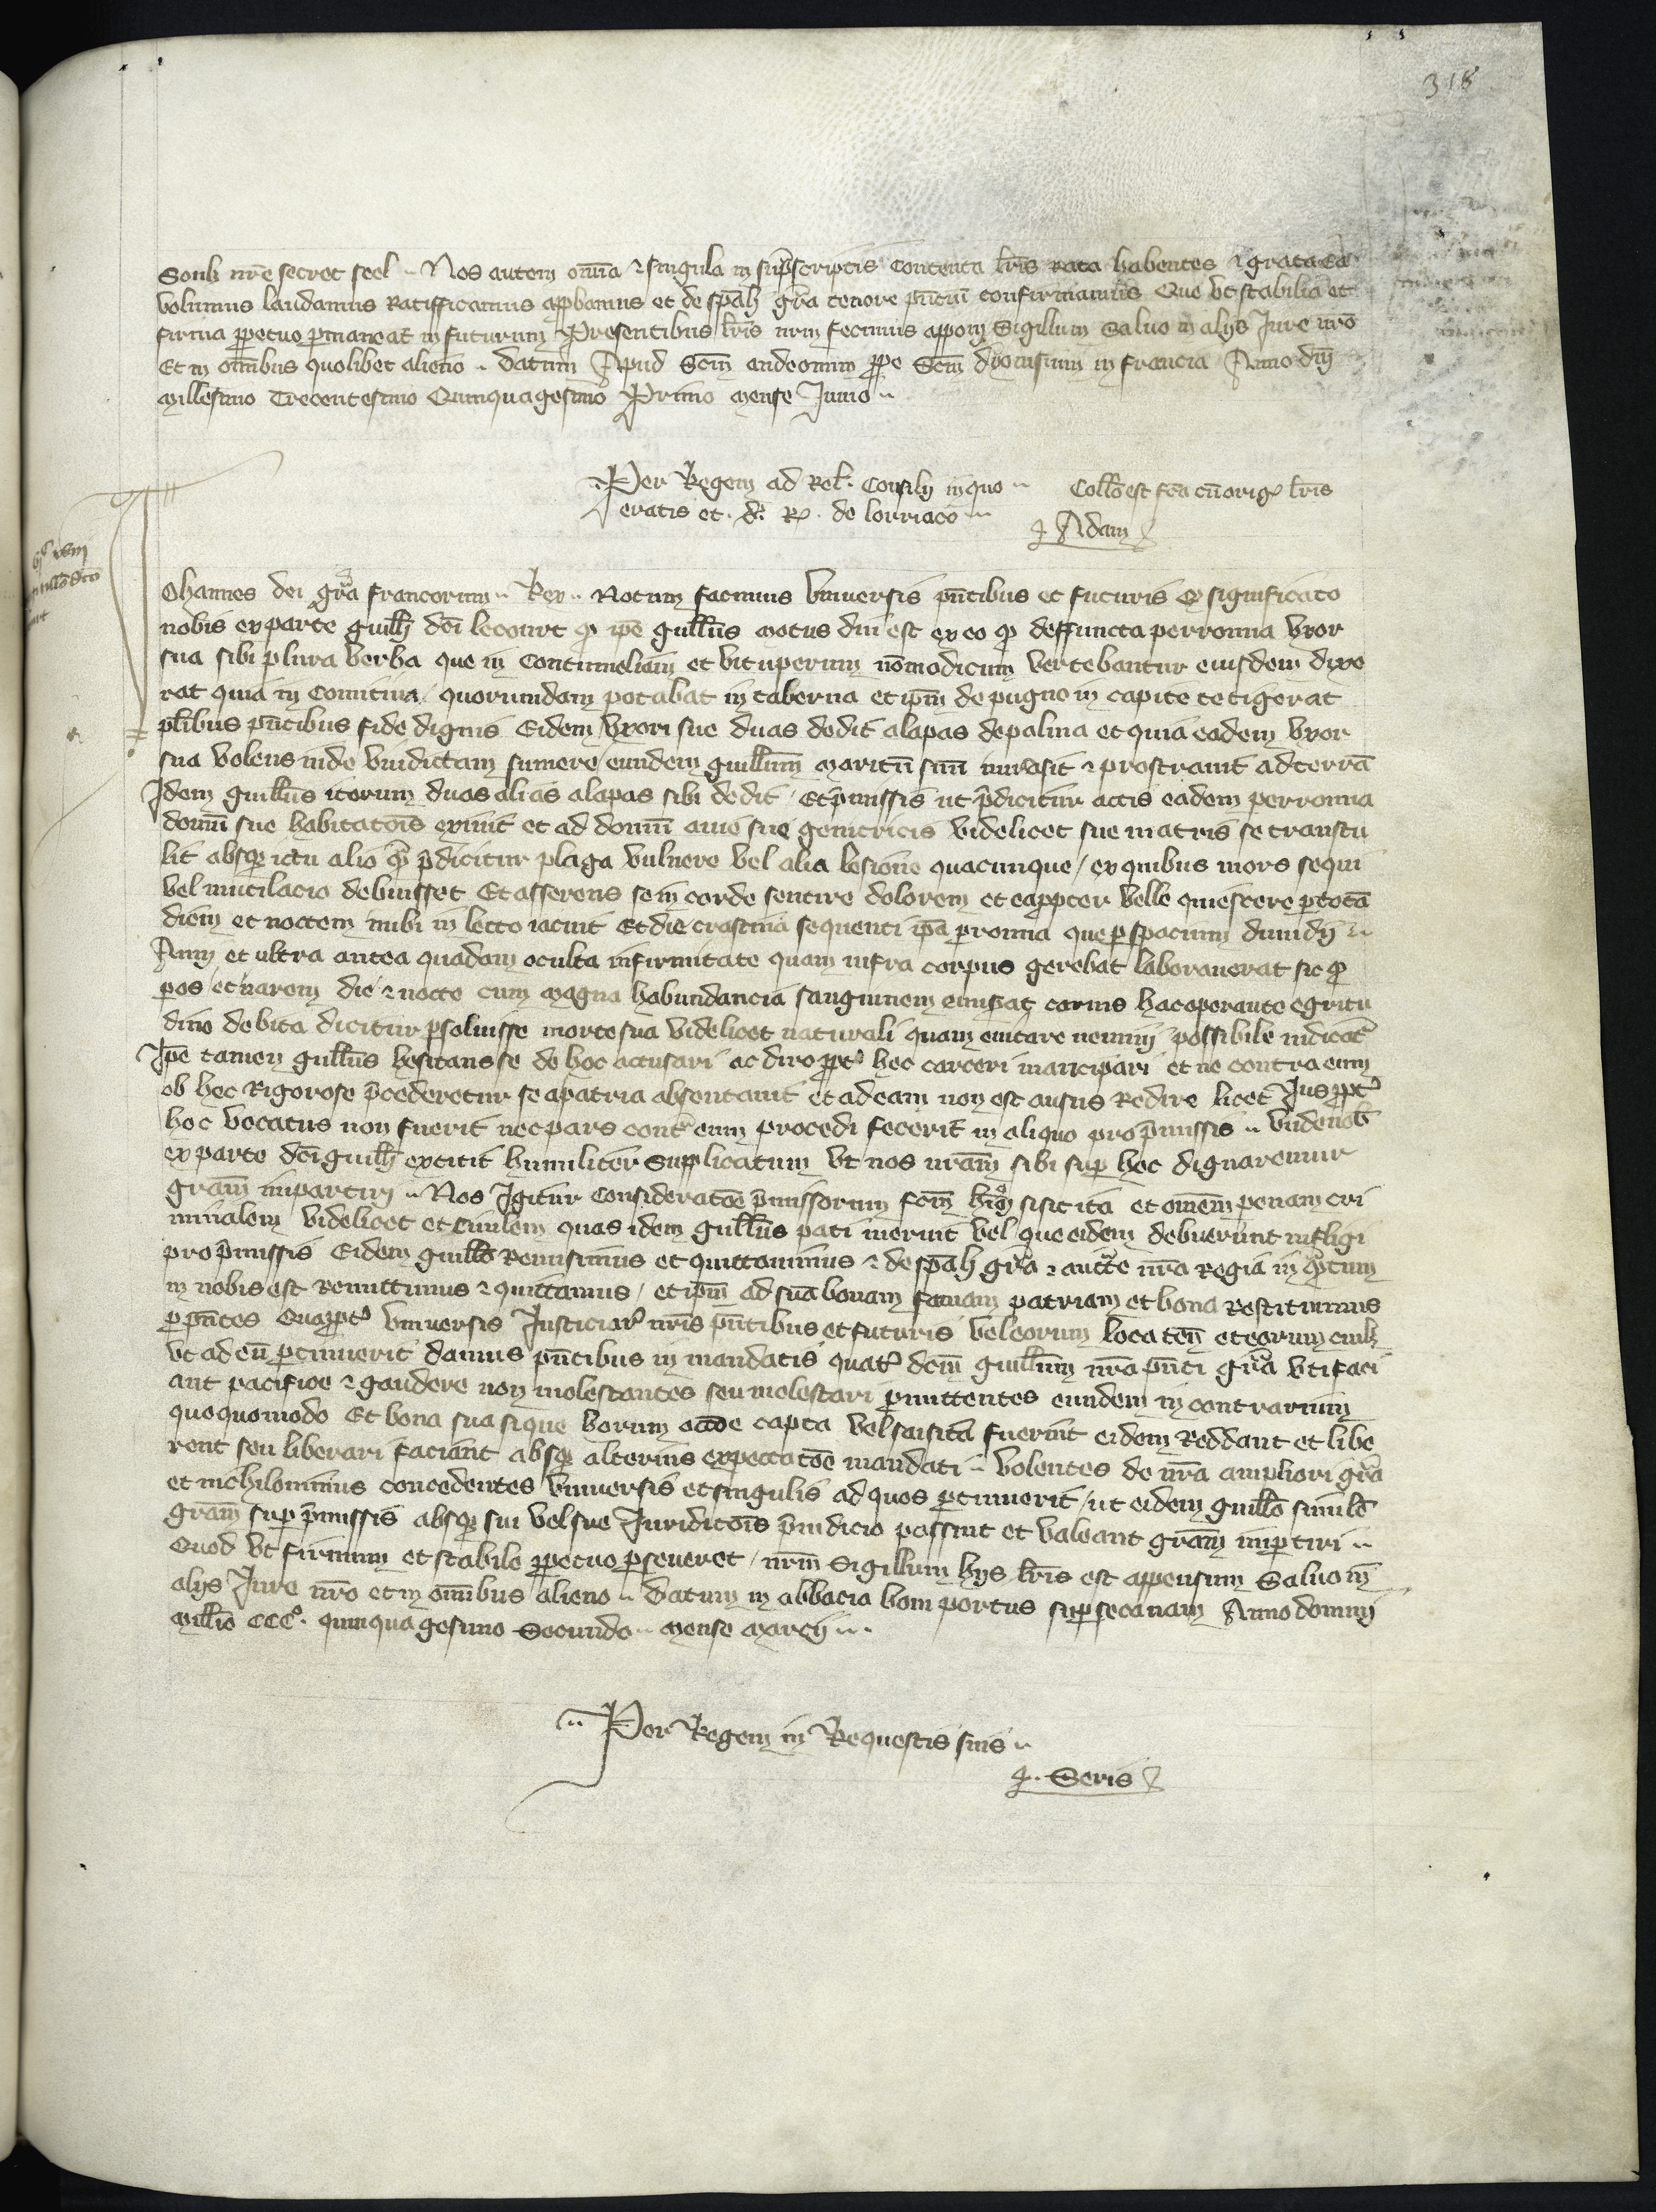 318
Soub nre secret seel .. Nos autem omia & singula in suprascriptis contenta lris rata habentes & grata ea
volumus laudamus Ratifficamus approbamus et de speali gra tenore pntium confirmamus Que ut stabilia et
firma perpetuo permaneat in futurum Presentibus lris nrm fecimus apponi Sigillum Salvo in alys Jure nro
Et in omibus quolibet alieno .. Datum Apud Scm audoenum prope Scm dyonisium in francia Anno dni
Millesimo Trecentesimo Quinquagesimo Primo mense Junio ..
Per Regem ad Rel. Consily in quo ..
eratis et. d. R. de lorriaco ...
Collo est fca cu orig lris
Adam
vic xviii
Ohannes dei gra francorum .. Rex .. Notum facimus universis pntibus et futuris Q significato
nobis ex parte guilli dci lecourt q ipe guillus motus diu est ex eo q deffuncta perronna uxor
sua sibi plura verba que in contumeliam et vituperium no modicum vertebantur eiusdem dixe
rat quia in comitiva quorumdam potabat in taberna et ipm de pugno in capite tetigerat
plibus pntibus fide dignis Eidem uxori sue duas dedit alapas de palma et quia eadem uxor
sua volens inde vindictam sumere eundem guillum maritu suu invasit & prostravit ad terra
Idem guillus iterum duas alias alapas sibi dedit / Et pmissis ut pdicitur actis eadem perronna
domu sue habitatois exivit et ad domu ame sue genitricis videlicet sue matris se transtu
lit absque ictu alio q pdicitur plaga vulnere vel alia lesione quacunque / ex quibus mors sequi
vel mutilacio debuisset Et asserens se in corde sentire dolorem et eapropter velle quiescere per tota
diem et noctem inibi in lecto iacuit Et die crastina sequenti ipa perronna que per spacium dimidy ..
Anni et ultra antea quadam oculta infirmitate quam infra corpus gerebat laboraverat sic q
per os et narem die & nocte cum magna habundancia sanguinem emiserat carnis hac operante egritu
dine debita dicitur persolvisse morte sua videlicet naturali quam evitare nemini possibile indicat
Ipe tamen guillus hesitans se de hoc accusari ac diro propt hec carceri mancipari et ne contra eum
ob hec Rigorose pcederetur se a patria absentavit et ad eam non est ausus Redire licet Jus propt
hoc vocatus non fuerit nec pars contra eum procedi fecerit in aliquo pro pmissis .. Unde nob
ex parte dci guilli extitit humiliter Supplicatum ut nos nram sibi super hoc dignaremur
gram impartiri .. Nos Igitur consideratoe pmissorum fcm hmoi si sit ita et omem penam cri
minalem videlicet et civilem quas idem guillus pati meruit vel que eidem debuerunt infligi
pro pmissis Eidem guillo Remisimus et quittavimus & de speali gra & aucte nra Regia in quatum
in nobis est Remittimus & quittamus / et ipm ad sua bonam famam patriam et bona Restituimus
per pntes Quapropt universis Justiciar nris pntibus et futuris vel eorum loca ten et eorum cuilz
ut ad eu pertinuerit damus pntibus in mandatis quat dcm guillum nra pnti gra uti faci
ant pacifice & gaudere non molestantes seu molestari permittentes eundem in contrarium
quoquomodo Et bona sua si que horum occoe capta vel saisita fuerint eidem Reddant et libe
rent seu liberari faciant absque alterius expectatoe mandati .. Volentes de nra ampliori gra
et nichilominus concedentes universis et singulis ad quos pertinuerit / ut eidem guillo simile
gram super pmissis absque sui vel sue Juridictois piudicio possint et valeant gram impertiri ..
Quod ut firmum et stabile perpetuo perseveret / nrm Sigillum hys lris est appensum Salvo in
alys Jure nro et in omibus alieno .. Datum in abbacia boni portus super secanam Anno domini
Millio CCCo. quinquagesimo Secundo .. Mense Marcii ...
Per Regem in Requestis suis ..
Seris